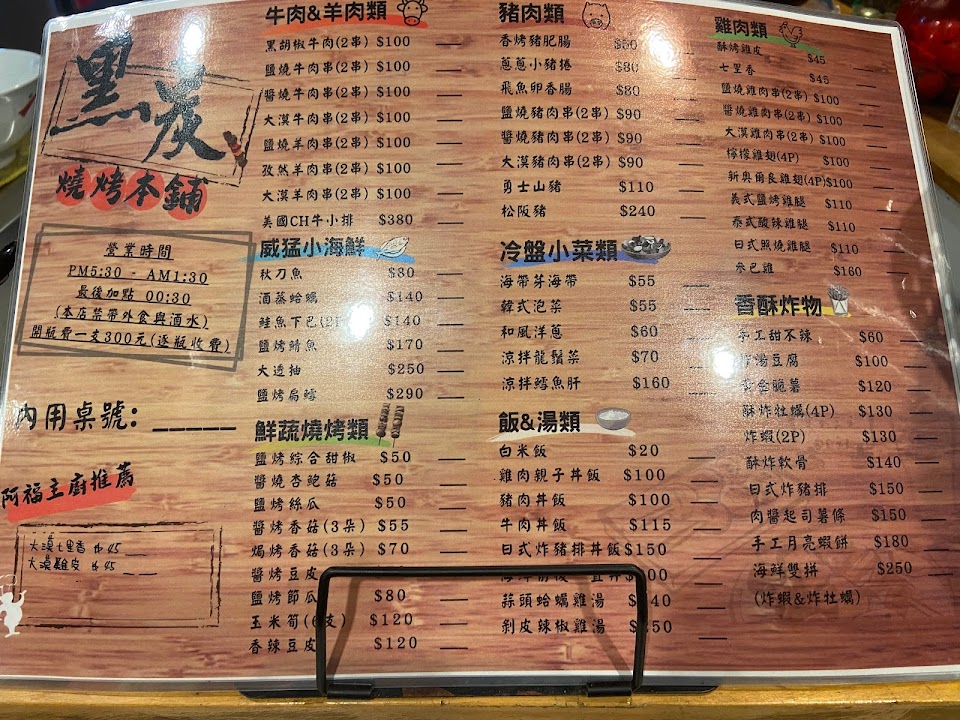 黑炭
燒烤本舖
營業時間
PM5:30 - AM1:30
最後加點 00:30
(本店禁帶外食與酒水)
開瓶費一支300元(逐瓶收費)
內用桌號: _____
阿福主廚推薦
大漠七里香 45
大漠雞皮 45
牛肉&羊肉類
黑胡椒牛肉(2串) $100
鹽燒牛肉串(2串) $100
醬燒牛肉串(2串) $100
大漠牛肉串(2串) $100
鹽燒羊肉串(2串) $100
孜然羊肉串(2串) $100
大漠羊肉串(2串) $100
美國CH牛小排 $380
威猛小海鮮
秋刀魚 $80
酒蒸蛤蠣 $140
鮭魚下巴 $140
鹽烤鯖魚 $170
大透抽 $250
鹽烤扁鱈 $290
鮮蔬燒烤類
鹽烤綜合甜椒 $50
醬燒杏鮑菇 $50
鹽烤絲瓜 $50
醬烤香菇(3朵) $55
焗烤香菇(3朵) $70
醬烤豆皮
鹽烤節瓜 $80
玉米筍(6支) $120
香辣豆皮 $120
豬肉類
香烤豬肥腸 $50
蔥蔥小豬捲 $80
飛魚卵香腸 $80
鹽燒豬肉串(2串) $90
醬燒豬肉串(2串) $90
大漠豬肉串(2串) $90
勇士山豬 $110
松阪豬 $240
冷盤小菜類
海帶芽海帶 $55
韓式泡菜 $55
和風洋蔥 $60
涼拌龍鬚菜 $70
涼拌鱈魚肝 $160
飯&湯類
白米飯 $20
雞肉親子丼飯 $100
豬肉丼飯 $100
牛肉丼飯 $115
日式炸豬排丼飯 $150
蒜頭蛤蠣雞湯
剝皮辣椒雞湯
雞肉類
酥烤雞皮 $45
七里香 $45
鹽燒雞肉串(2串) $100
醬燒雞肉串(2串) $100
大漠雞肉串(2串) $100
檸檬雞翅(4P) $100
新奧爾良雞翅(4P) $100
美式鹽烤雞腿 $110
泰式酸辣雞腿 $110
日式照燒雞腿 $110
參巴雞 $160
香酥炸物
手工甜不辣 $60
炸湯豆腐 $100
黃金脆薯 $120
酥炸牡蠣(4P) $130
炸蝦(2P) $130
酥炸軟骨 $140
日式炸豬排 $150
肉醬起司薯條 $150
手工月亮蝦餅 $180
海鮮雙拼 $250
(炸蝦&炸牡蠣)